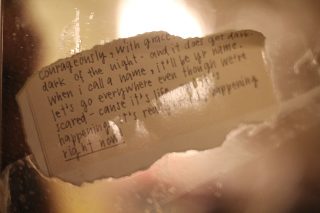 courageously, with grace
dark of the night - and it does get dark.
when i call a name, it'll be yr name.
let's go everywhere even though we're
scared - cause it's life happening
happening it's real
right now